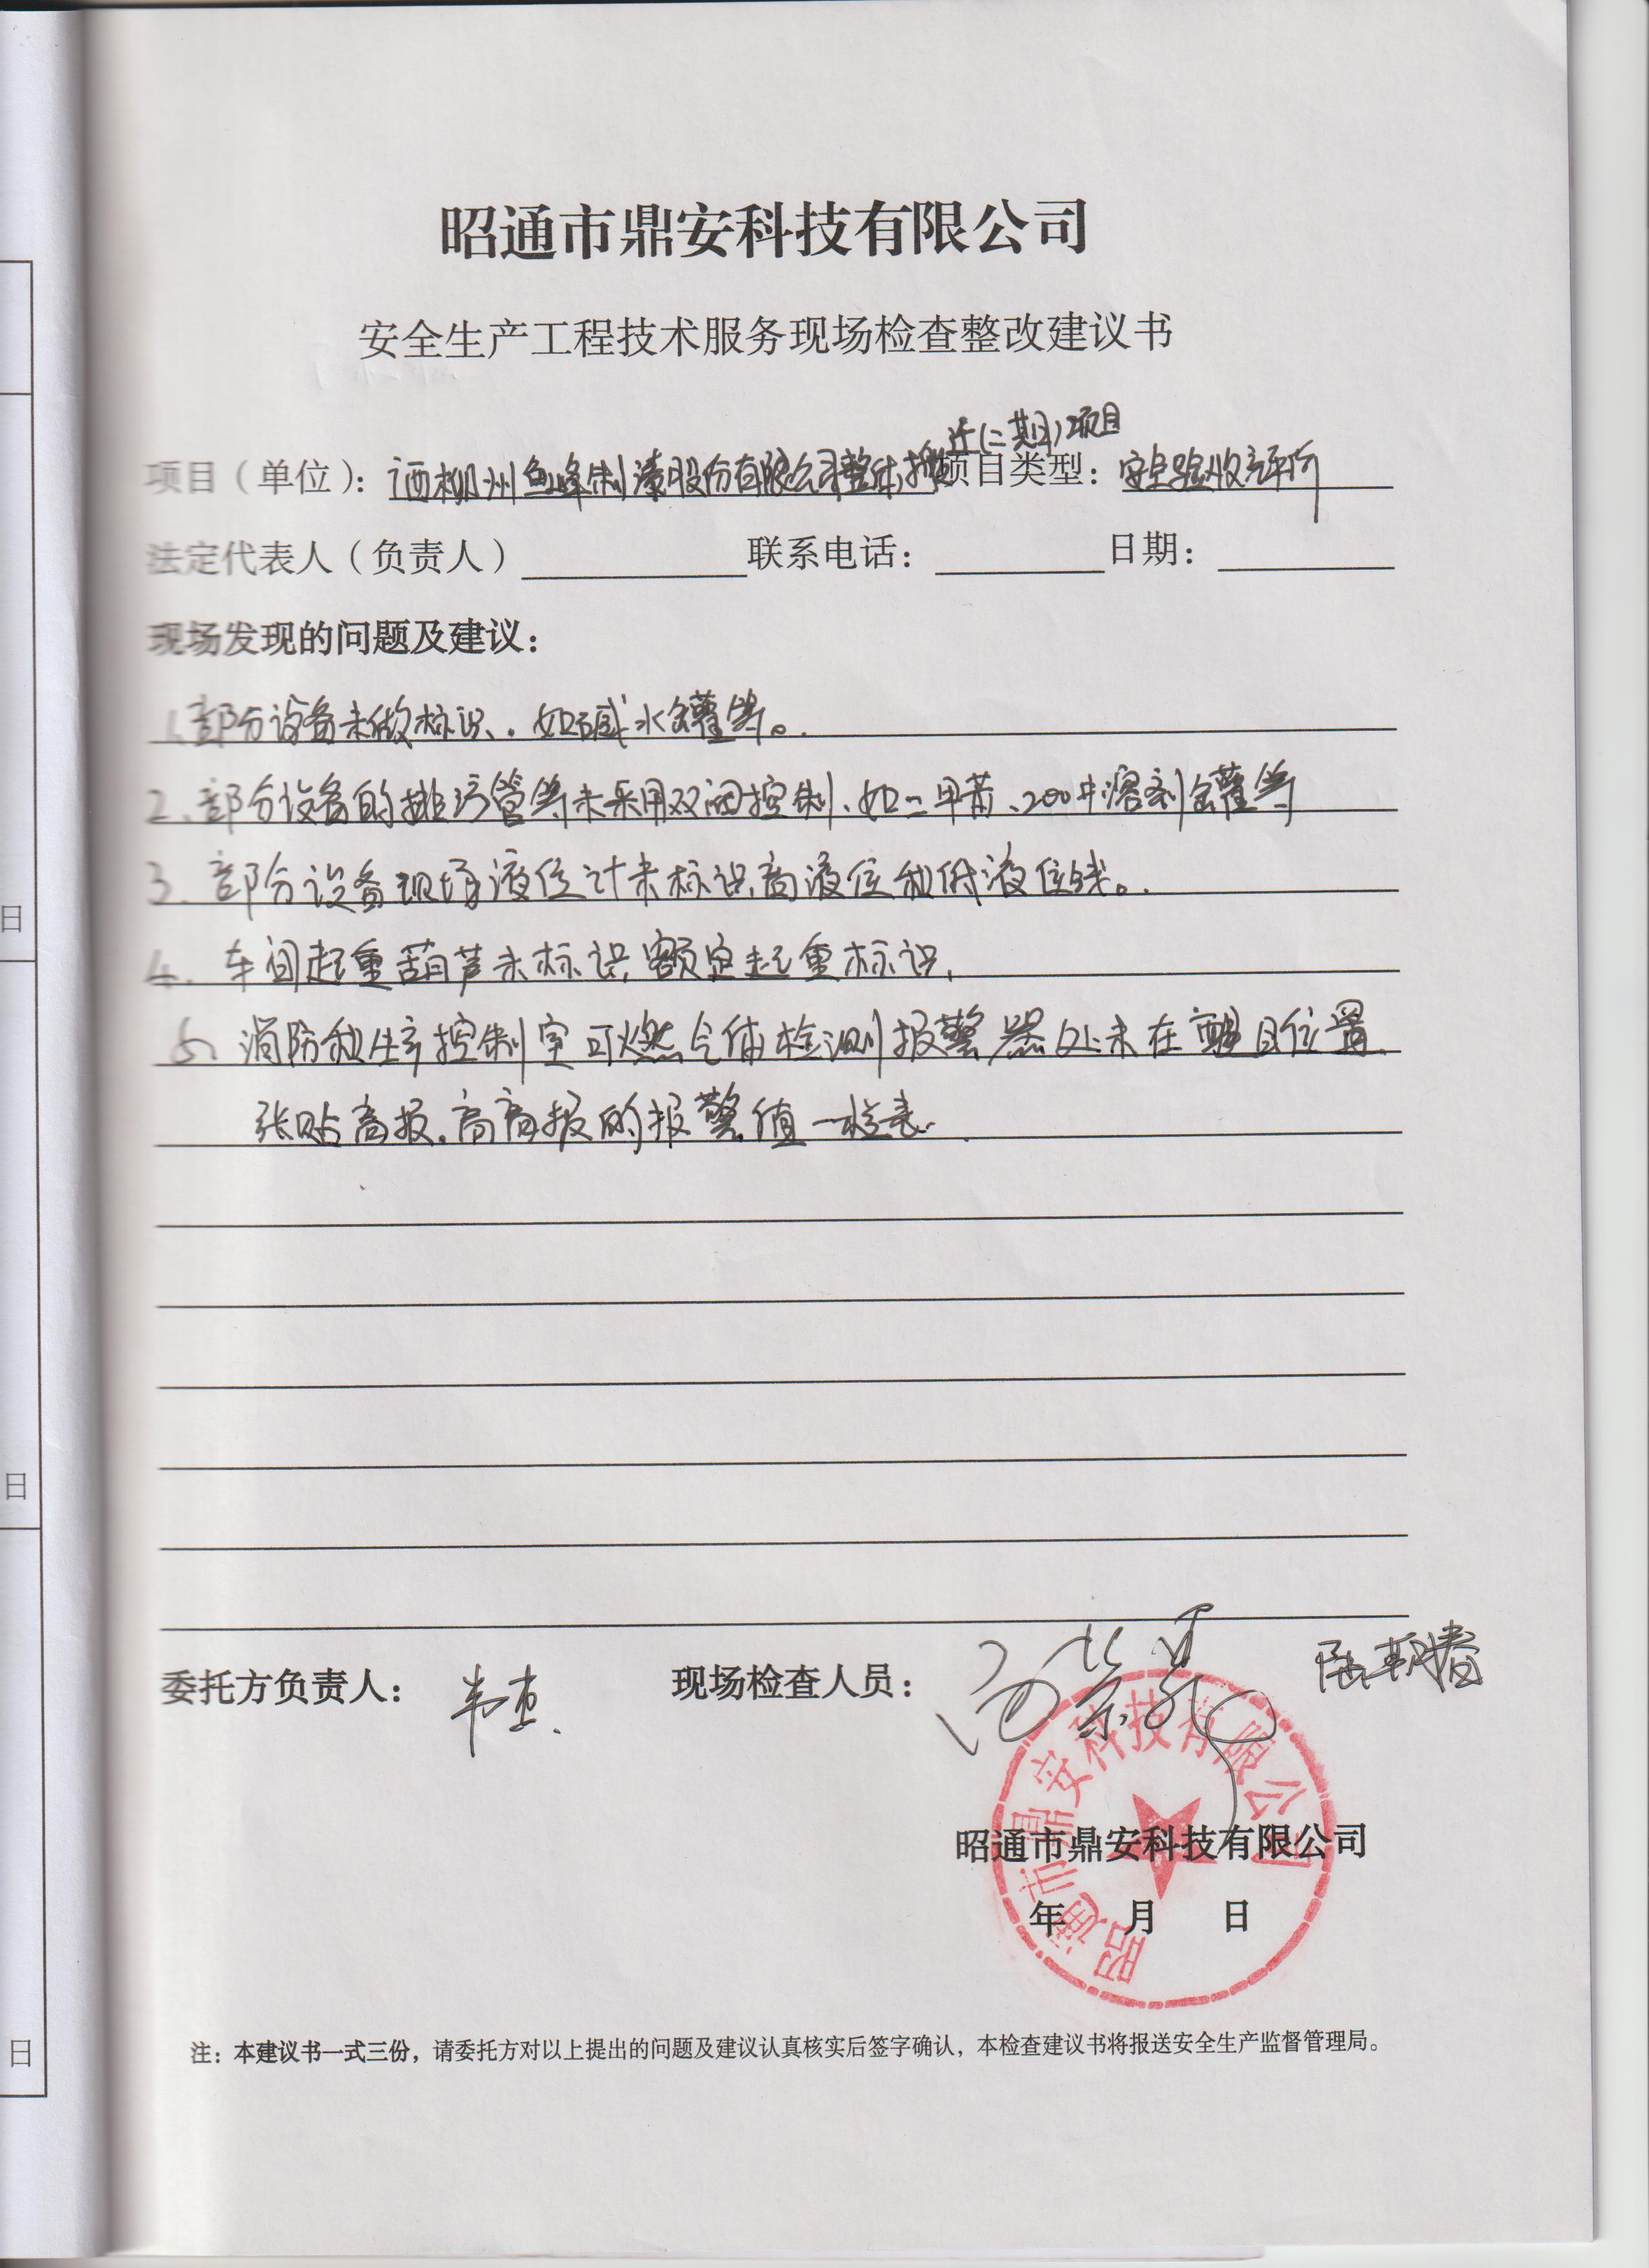 昭通市鼎安科技有限公司
安全生产工程技术服务现场检查整改建议书
迁(二期)项目
项目（单位）：广西柳州鱼峰制漆股份有限公司整体搬项目类型：安全验收评价
法定代表人（负责人）联系电话：日期：
现场发现的问题及建议：
1、部分设备未做标识、如碱水罐等。
2、部分设备的排污管等未采用双阀控制、如二甲苯、200#溶剂罐等
3、部分设备现场液位计未标识高液位和低液位线。
4、车间起重葫芦未标识额定起重标识、
5、消防和生产控制室可燃气体检测报警器处未在醒目位置
张贴高报、高高报的报警值一栏表.
委托方负责人：韦 现场检查人员：
昭通市鼎安科技有限公司
昭通市鼎安科技有限公司
年 月 日
注：本建议书一式三份，请委托方对以上提出的问题及建议认真核实后签字确认，本检查建议书将报送安全生产监督管理局。
日
日
日